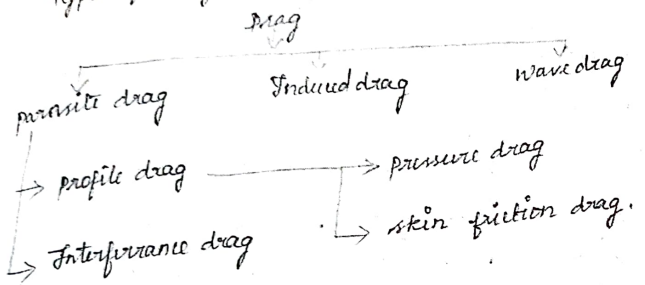 Drag
parasite drag Induced drag wave drag
profile drag pressure drag
skin friction drag.
Interfirrance drag